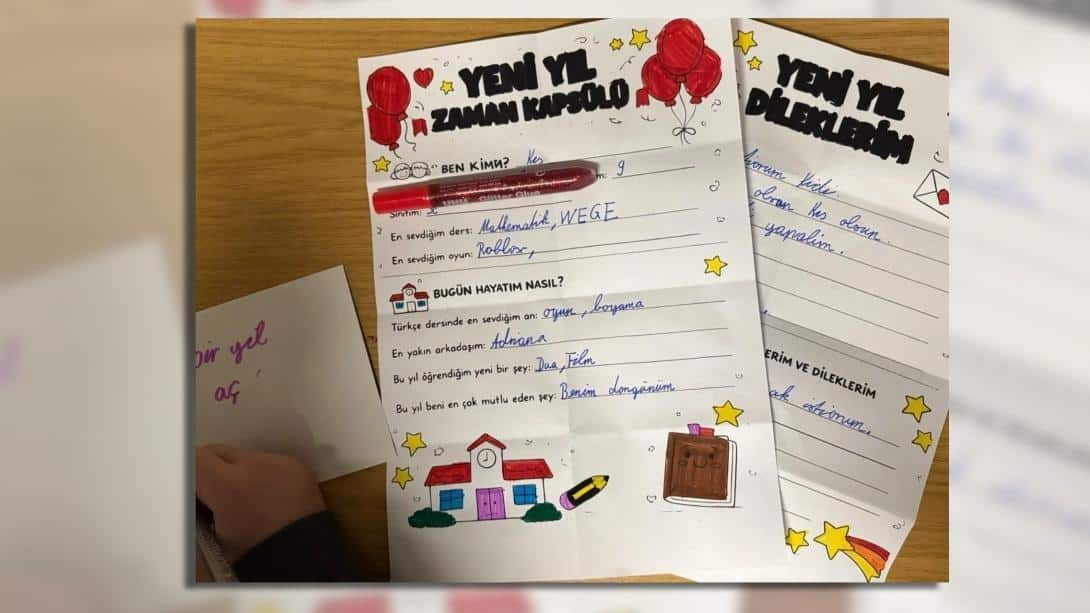 YENİ YIL
ZAMAN KAPSÜLÜ
BEN KİMİM?
9
Sınıfım:
En sevdiğim ders: Mathematik, WEGE
En sevdiğim oyun: Roblox,
BUGÜN HAYATIM NASIL?
Türkçe dersinde en sevdiğim an: oyun, boyama
En yakın arkadaşım: Adriana
Bu yıl öğrendiğim yeni bir şey: Dua, Film
Bu yıl beni en çok mutlu eden şey: Benim dongünüm
YENİ YIL
DİLEKLERİM
olsun Kıs olsun.
yapalim.
ERİM VE DİLEKLERİM
ak istiorum.
bir yel
aç